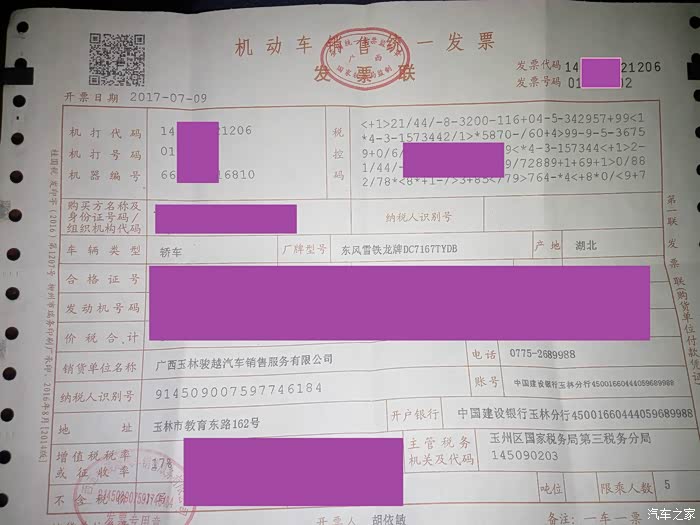 机动车销售统一发票
发票联
发票代码 14 21206
发票号码 01 02
开票日期 2017-07-09
机打代码 14 21206
机打号码 01
机器编号 66 16810
税控码
<+1>21/44/-8-3200-116+04-5-342957+99<1
*4-3-1573442/1>*5870-/60+4>99-9-5-3675
9+0/6/ 9<*4-3-157344<+1>2-
1/44/- 9/72889+1+69+1>0/88
2/78*<8*+1-7/3+85</79>764-*4<+8*0/<9+7
购买方名称及身份证号码/组织机构代码
纳税人识别号
车辆类型 轿车 厂牌型号 东风雪铁龙牌DC7167TYDB 产地 湖北
合格证号
发动机号码
价税合计
销货单位名称 广西玉林骏越汽车销售服务有限公司 电话 0775-2689988
纳税人识别号 914509007597746184 账号 中国建设银行玉林分行45001660444059689988
地址 玉林市教育东路162号 开户银行 中国建设银行玉林分行45001660444059689988
增值税税率或征收率 17% 主管税务机关及代码 玉州区国家税务局第三税务分局 145090203
不含税 吨位 限乘人数 5
开票人 胡依敏 备注:一车一票
第一联 发票联(购货单位付款凭证)
汽车之家